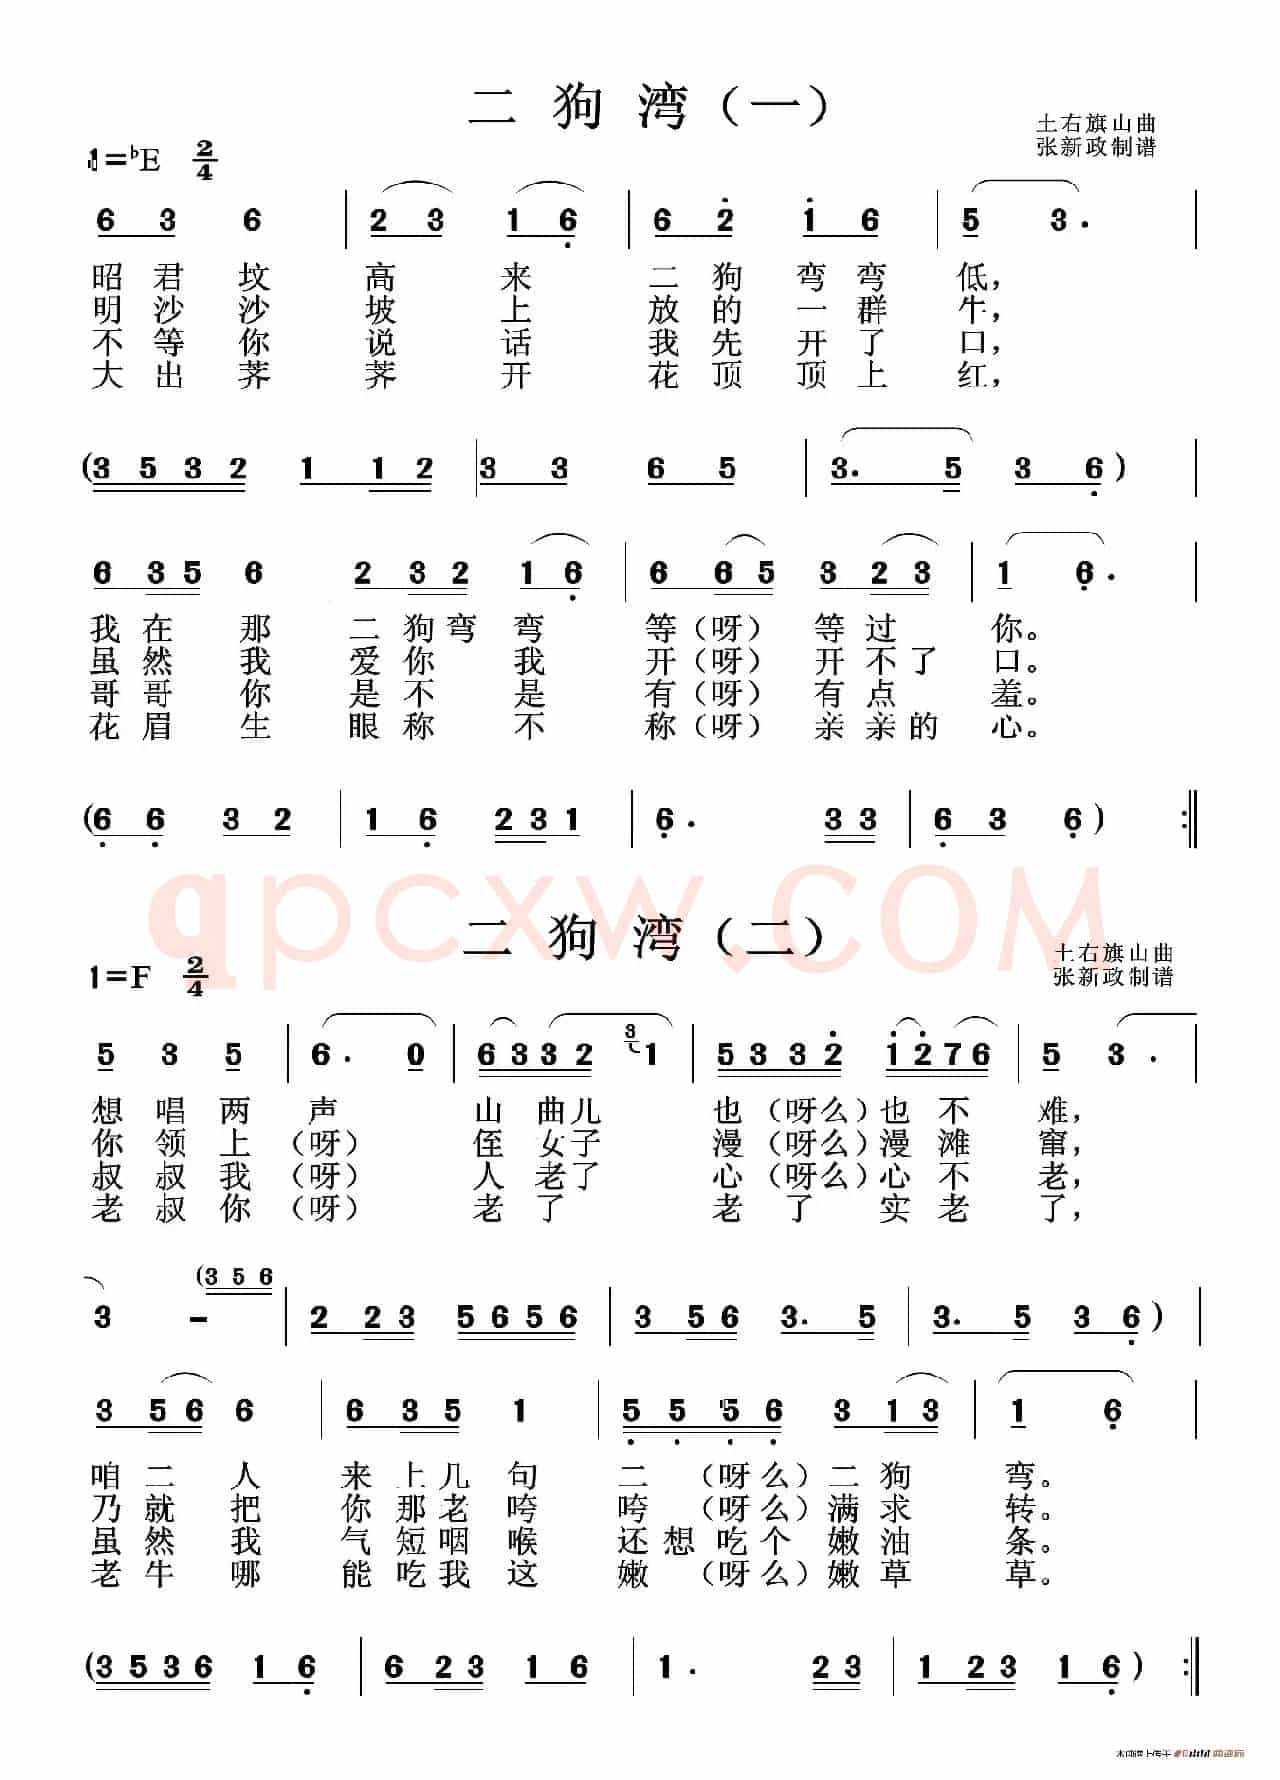 二狗湾（一）
土右旗山曲
张新政制谱
1=♭E 2/4
6 3 6 | 2 3 1 6 | 6 2 1 6 | 5 3. |
昭君坟高来二狗弯弯低，
明沙沙坡上放的一群牛，
不等你说话我先开了口，
大出荞荞开花顶顶上红，
(3 5 3 2 1 1 2 | 3 3 6 5 | 3. 5 3 6) |
6 3 5 6 2 3 2 1 6 | 6 6 5 3 2 3 | 1 6. |
我在那二狗弯弯等（呀）等过你。
虽然我爱你我开（呀）开不了口。
哥哥你是不是有（呀）有点羞。
花眉生眼称不称（呀）亲亲的心。
(6 6 3 2 | 1 6 2 3 1 | 6. 3 3 | 6 3 6) :||
二狗湾（二）
土右旗山曲
张新政制谱
1=F 2/4
5 3 5 | 6. 0 | 6 3 3 2 3 1 | 5 3 3 2 1 2 7 6 | 5 3. |
想唱两声山曲儿也（呀么）也不难，
你领上（呀）侄女子漫（呀么）漫滩窜，
叔叔我（呀）人老了心（呀么）心不老，
老叔你（呀）老了老了实老了，
3 - (3 5 6 | 2 2 3 5 6 5 6 | 3 5 6 3. 5 | 3. 5 3 6) |
3 5 6 6 | 6 3 5 1 | 5 5 5 6 3 1 3 | 1 6 |
咱二人来上几句二（呀么）二狗弯。
乃就把你那老咵咵（呀么）满求转。
虽然我气短咽喉还想吃个嫩油条。
老牛哪能吃我这嫩（呀么）嫩草草。
(3 5 3 6 1 6 | 6 2 3 1 6 | 1. 2 3 | 1 2 3 1 6) :||
qpcxw.COM